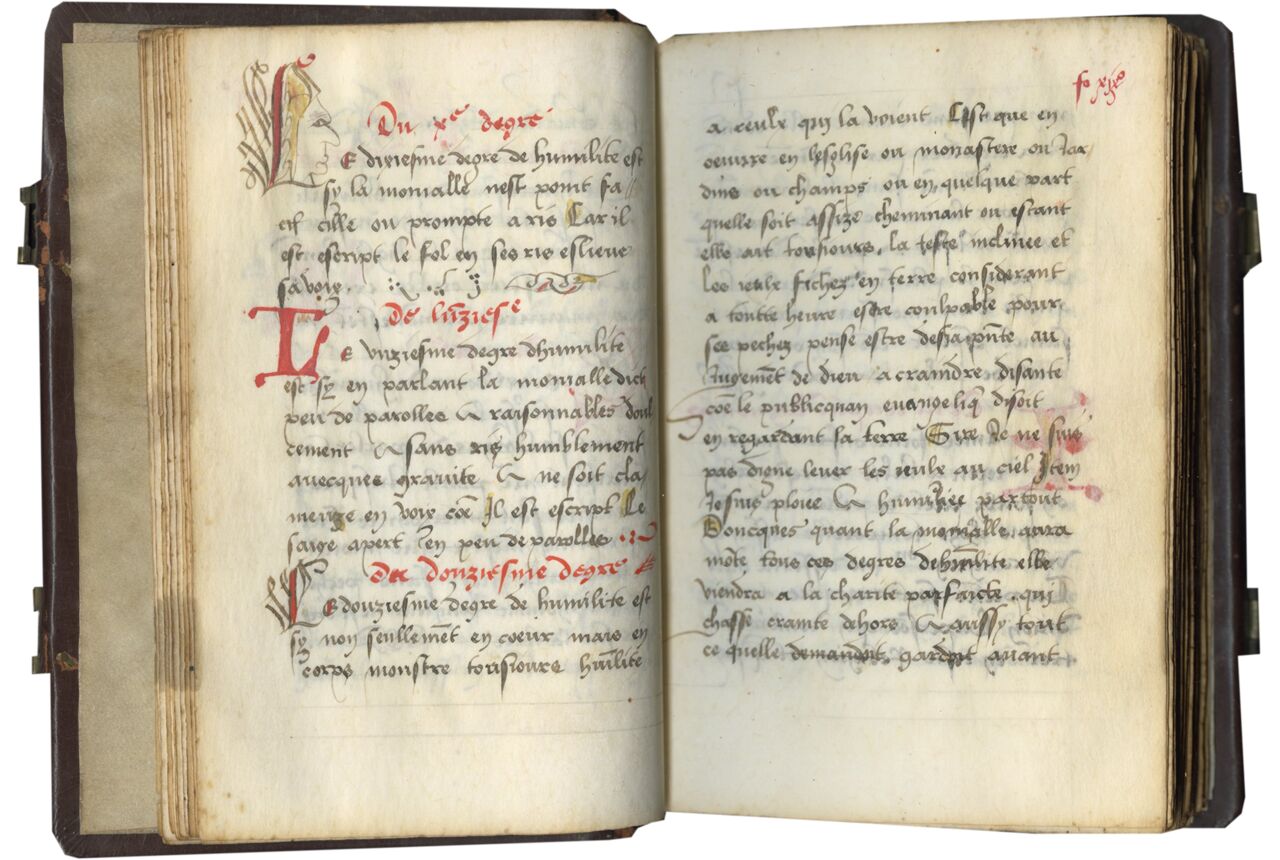 Du xe degre
LE dixiesme degre de humilite est
sy la monialle nest point fa
cil cille ou prompte a ris Car il
est escript le fol en ses ris eslieve
sa voix.
De lunziese
LE unziesme degre dhumilite
est sy en parlant la monialle dict
peu de parolles & raisonnables doul
cement & sans ris humblement
avecques gravite & ne soit cla-
meuze en voix coe Il est escript Le
saige apert en peu de parolles
du douziesme degre
LE douziesme degre de humilite est
sy non seullemet en coeur mais en
corps monstre tousiours huilite
fo
a ceulx qui la voient Cest que en
oeuvre en lesglise ou monastere ou Jar-
dins ou champs ou en quelque part
quelle soit assize cheminant ou estant
elle ait tousiours la teste inclinee et
les ieulx fichez en terre considerant
a toutte heure estre coulpable pour
ses pechez pense estre desia pnte au
Jugemet de dieu a craindre disante
coe le publicquan evangeliq disoit
en regardant la terre Sire Je ne suis
pas digne lever les ieulx au ciel Item
Je suis ploiee & humiliee partout
Doncques quant la monialle aura
mote tous ces degres dehuilite elle
viendra a la charite parfaicte qui
chasse crainte dehors & aussy tout
ce quelle demandoit gardoit avant